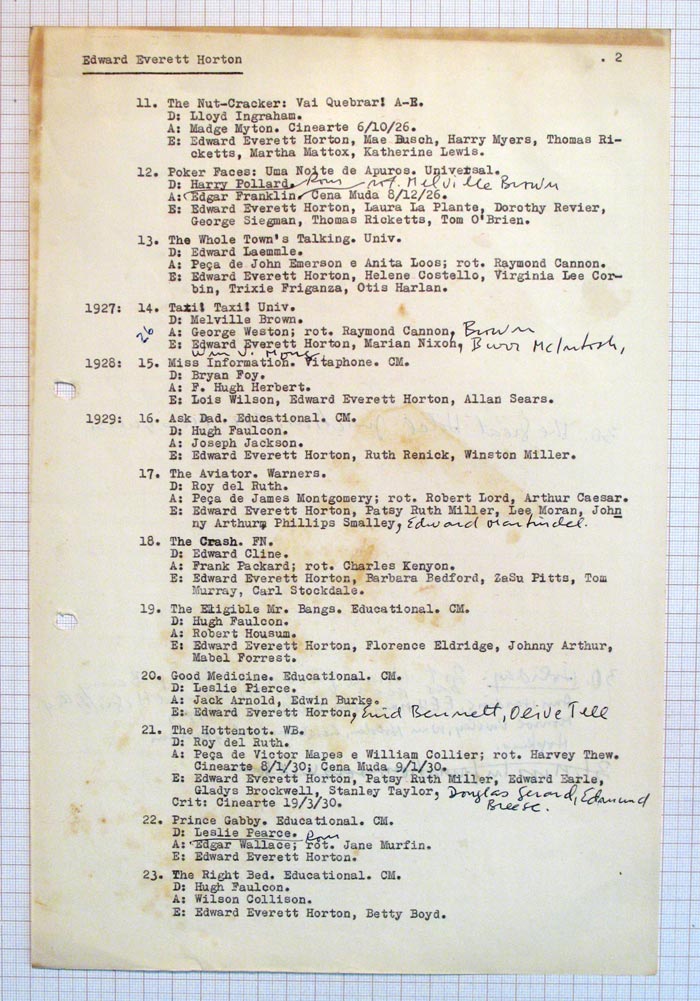 Edward Everett Horton . 2
11. The Nut-Cracker: Vai Quebrar! A-E.
D: Lloyd Ingraham.
A: Madge Myton. Cinearte 6/10/26.
E: Edward Everett Horton, Mae Busch, Harry Myers, Thomas Ri-
cketts, Martha Mattox, Katherine Lewis.
12. Poker Faces: Uma Noite de Apuros. Universal.
D: Harry Pollard. Rom rot. Melville Brown
A: Edgar Franklin. Cena Muda 8/12/26.
E: Edward Everett Horton, Laura La Plante, Dorothy Revier,
George Siegman, Thomas Ricketts, Tom O'Brien.
13. The Whole Town's Talking. Univ.
D: Edward Laemmle.
A: Peça de John Emerson e Anita Loos; rot. Raymond Cannon.
E: Edward Everett Horton, Helene Costello, Virginia Lee Cor-
bin, Trixie Friganza, Otis Harlan.
1927: 14. Taxi! Taxi! Univ.
D: Melville Brown.
26 A: George Weston; rot. Raymond Cannon, Brown
E: Edward Everett Horton, Marian Nixon, Burr McIntosh,
Wm V. Mong
1928: 15. Miss Information. Vitaphone. CM.
D: Bryan Foy.
A: F. Hugh Herbert.
E: Lois Wilson, Edward Everett Horton, Allan Sears.
1929: 16. Ask Dad. Educational. CM.
D: Hugh Faulcon.
A: Joseph Jackson.
E: Edward Everett Horton, Ruth Renick, Winston Miller.
17. The Aviator. Warners.
D: Roy del Ruth.
A: Peça de James Montgomery; rot. Robert Lord, Arthur Caesar.
E: Edward Everett Horton, Patsy Ruth Miller, Lee Moran, John
ny Arthur, Phillips Smalley, Edward Martindel.
18. The Crash. FN.
D: Edward Cline.
A: Frank Packard; rot. Charles Kenyon.
E: Edward Everett Horton, Barbara Bedford, ZaSu Pitts, Tom
Murray, Carl Stockdale.
19. The Eligible Mr. Bangs. Educational. CM.
D: Hugh Faulcon.
A: Robert Housum.
E: Edward Everett Horton, Florence Eldridge, Johnny Arthur,
Mabel Forrest.
20. Good Medicine. Educational. CM.
D: Leslie Pierce.
A: Jack Arnold, Edwin Burke.
E: Edward Everett Horton, Enid Bennett, Olive Tell
21. The Hottentot. WB.
D: Roy del Ruth.
A: Peça de Victor Mapes e William Collier; rot. Harvey Thew.
Cinearte 8/1/30; Cena Muda 9/1/30.
E: Edward Everett Horton, Patsy Ruth Miller, Edward Earle,
Gladys Brockwell, Stanley Taylor, Douglas Gerard, Edmund
Breese.
Crit: Cinearte 19/3/30.
22. Prince Gabby. Educational. CM.
D: Leslie Pearce. Rom
A: Edgar Wallace; rot. Jane Murfin.
E: Edward Everett Horton.
23. The Right Bed. Educational. CM.
D: Hugh Faulcon.
A: Wilson Collison.
E: Edward Everett Horton, Betty Boyd.